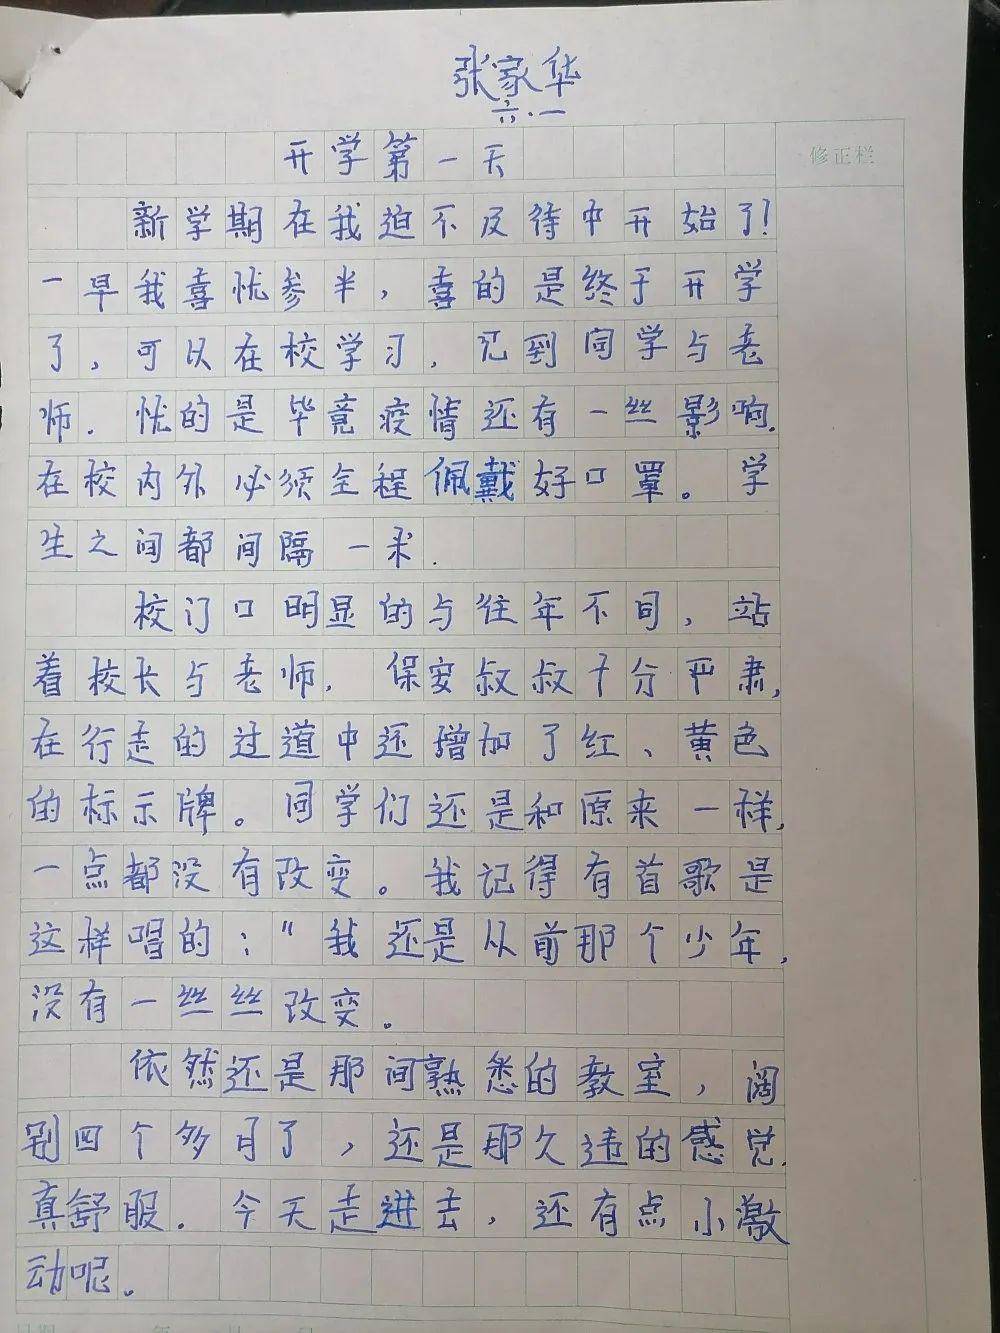 张家华
六.一
开学第一天
修正栏
新学期在我迫不及待中开始了!
一早我喜忧参半，喜的是终于开学
了，可以在校学习，见到同学与老
师.忧的是毕竟疫情还有一丝影响.
在校内外必须全程佩戴好口罩。学
生之间都间隔一米.
校门口明显的与往年不同，站
着校长与老师，保安叔叔十分严肃，
在行走的过道中还增加了红、黄色
的标示牌。同学们还是和原来一样，
一点都没有改变。我记得有首歌是
这样唱的："我还是从前那个少年，
没有一丝丝改变。
依然还是那间熟悉的教室，阔
别四个多月了，还是那久违的感觉.
真舒服.今天走进去，还有点小激
动呢。